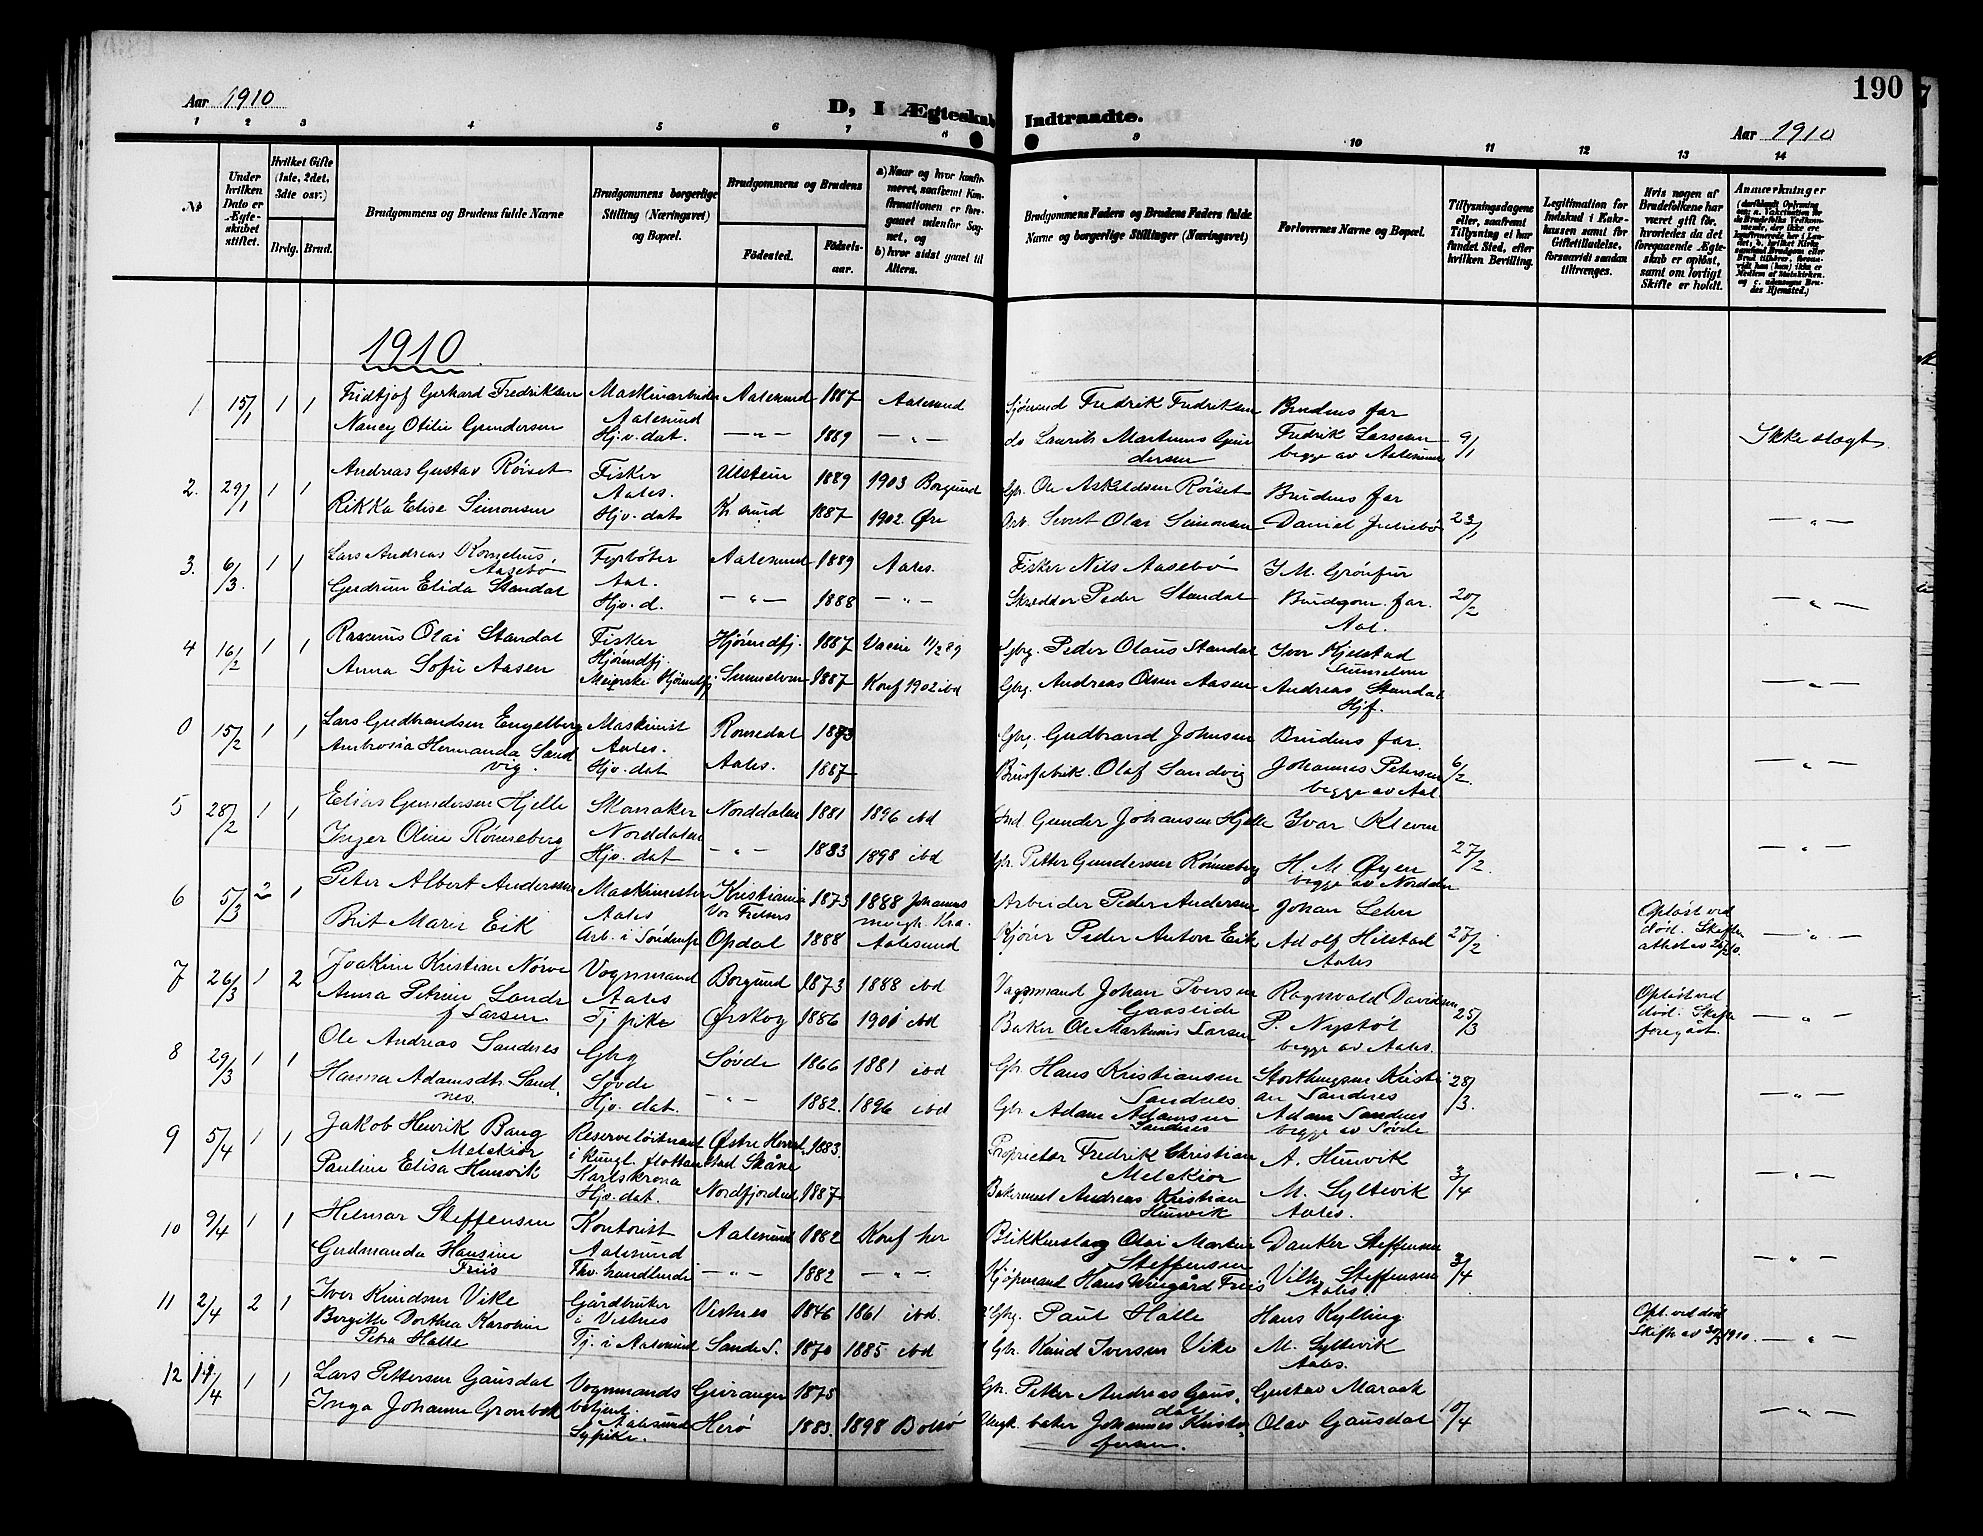 190
Aar 1910
D, I Ægteskab Indtraadte.
Aar 1910
1 2 3 4 5 6 7 8 9 10 11 12 13 14
№
Under hvilken Dato er Ægteskabet stiftet.
Hvilket Gifte (1ste, 2det, 3dte osv.)
Brdg. Brud.
Brudgommens og Brudens fulde Navne
Brudgommens borgerlige Stilling (Næringsvei) og Bopæl.
Brudgommens og Brudens
Fødested.
Fødselsaar.
a) Naar og hvor konfirmeret, saafremt Konfirmationen er foregaaet udenfor Sognet, og
b) hvor sidst gaaet til Alters.
Brudgommens Faders og Brudens Faders fulde Navne og borgerlige Stillinger (Næringsvei)
Forlovernes Navne og Bopæl.
Tillysningsdagene eller, saafremt Tillysning ei har fundet Sted, efter hvilken Bevilling.
Legitimation for Indskud i Enkekassen samt for Giftetilladelse, forsaavidt saadan tiltrænges.
Hvis nogen af Brudefolkene har været gift før, hvorledes da det foregaaende Ægteskab er opløst, samt om lovligt Skifte er holdt.
Anmærkninger
1910
1 15/1 1 1 Fridtjof Gerhard Fredriksen Maskinarbeider Aalesund 1887 Aalesund Sjømand Fredrik Fredriksen Brudens far
Aalesund
Nancy Otilie Gundersen Hj.v.dat. —"— 1889 —"— do Laurits Martinus Gundersen Fredrik Larssen 9/1 Ikke slegt
begge av Aalesund
2. 29/1 1 1 Andreas Gustav Røiset Fisker Ulstein 1889 1903 Borgund Gbr. Ole Askildsen Røiset Brudens far
Aales.
Rikka Elise Simonsen Hjv. dat Kr sund 1887 1902 Øre Arb. Sivert Olai Simonsen Daniel Juliebø 23/1 —"—
3. 6/3. 1 1 Lars Andreas Kornelius Aasebø Aalesund 1889 Aales. Fisker Nils Aasebø
Aal.
Gudrun Elida Standal Hjv. d. —"— 1888 —"— Skrædder Peder Standal Brudgom. far. 20/2 —"—
Aal.
4 16/2 1 1 Rasmus Olai Standal Fisker Hjørundfj. 1887 Vaccin 11/2 89 Gbg. Peder Olaus Standal Iver Kjelstad
Hjørundfj. Sunnelven
Anna Sofie Aasen Meierske Hjørundfj Sunnelven 1887 Konf 1902 ibd Gbg. Andreas Olsen Aasen Andreas Standal —"—
Hjf.
0 15/2 1 1 Lars Gudbrandsen Engelberg Maskinist Romsdal 1883 Gbg. Gudbrand Johnsen Brudens far.
Aales.
Ambrosia Hermanda Sandvig. Hjv. dat Aales. 1887 Olaf Sandvig Johannes Petersen 6/2 —"—
begge av Aal.
5 28/2 1 1 Elias Gundersen Hjelle Skomaker Norddalen 1881 1896 ibd Gunder Johansen Hjelle Ivar Kleven
Norddalen
Inger Oline Rønneberg Hjv. dat —"— 1883 1898 ibd Gbr. Petter Gundersen Rønneberg H. M. Øyen 27/2. —"—
begge av Norddalen
6 5/3 2 1 Peter Albert Andersen Maskinmester Kristiania 1873 1888 Johannes Arbeider Peder Andersen Johan Leben Opløst ved
Aales Vor Frelsers menigh. Kra. død. Skifte
Brit Marie Eik Arb. i Opdal 1888 Aalesund Kjører Peder Anton Eik Adolf Hilstad 27/2 —"—
Aales
7 26/3 1 2 Joakim Kristian Nørve Vognmand Borgund 1873 1888 ibd Vognmand Johan Iversen Gaaseide Ragnvald Davidsen Opløst ved
Anna Petrine Lande f Larsen. Aales død. Skifte
Tj pike Ørskog 1886 1901 ibd Baker Ole Martinus Larsen P. Nystøl 25/3 foregåt. —"—
begge av Aales.
8 29/3 1 1 Ole Andreas Sandnes Gbg Søvde 1866 1881 ibd Gbr Hans Kristiansen Sandnes Storthingsm Kristian Sandnes 28/3.
Søvde
Hanna Adamsdtr. Sandnes. Hjv. dat. —"— 1882. 1896 ibd Gbr. Adam Adamsen Sandnes Adam Sandnes —"—
begge av Søvde
9 5/4 1 1 Jakob Henrik Bang Melckior Reserveløitnant Østre 1883. Proprietær Fredrik Christian Melckior A. Hunvik
i kungl. flottan stad Skåne
Karlskrona
Pauline Elisa Hunvik Hjv. dat. Nordfjordeid 1887 Bakermest Andreas Kristian Hunvik M. Syltevik 3/4 —"—
Aales.
10 9/4 1 1 Hilmar Steffensen Kontorist Aalesund 1882 Konf her Blikkenslag Olai Martin Steffensen Danker Steffensen
Aalesund
Gudmanda Hansine Friis handlende —"— 1882 —"— Kjøpmand Hans Wingård Friis Vilh. Steffensen 3/4 —"—
Aales.
11 2/4 2 1 Iver Knudsen Vike Gårdbruker Vestnes 1846 1861 ibd. Gbg. Paul Halle Hans Kylling Opl. ved død
i Vestnes Skifte av 30/3 1910.
Bergitte Dorthea Karoline Petra Halle Tj. i Aalesund Sande S. 1870 1885 ibd Gbr. Knud Iversen Vike M. Syltevik —"—
Aales.
12 14/4 1 1 Lars Pettersen Gausdal Vognmands Geiranger 1875 Gbr. Petter Andreas Gausdal Gustav Maraak
betjent.
Aalesund
Inga Johanne Grønbek Sypike. Herø 1883. 1898 Bolsø baker Johannes Kristofersen. Olav Gausdal 10/4 —"—